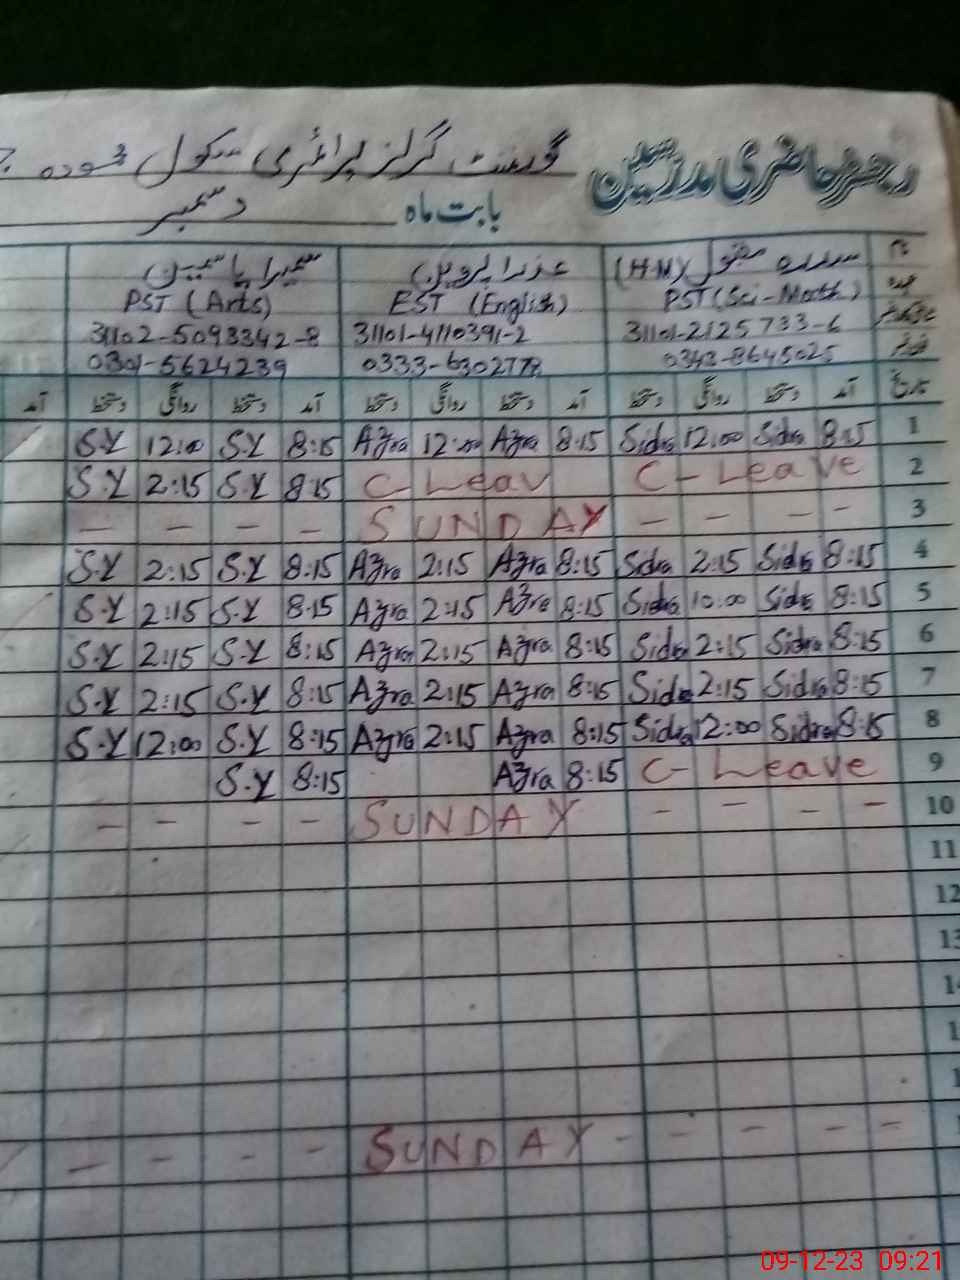 رجسٹر حاضری مدرسین گورنمنٹ گرلز پرائمری سکول
بابت ماہ دسمبر
نام سدرہ مقبول (H.M) عذرا پروین سمیرا یاسمین
عہدہ PST (Sci-Math) EST (English) PST (Arts)
شناختی کارڈ نمبر 31101-2125733-6 31101-4110391-2 31102-5093342-8
فون نمبر 0343-8645025 0333-6302778 0301-5624239
تاریخ آمد دستخط روانگی دستخط آمد دستخط روانگی دستخط آمد دستخط روانگی دستخط آمد
1 8:15 Sidra 12:00 Sidra 8:15 Azra 12:00 Azra 8:15 S.Y 12:00 S.Y
2 C-Leave C-Leav 8:15 S.Y 2:15 S.Y
3 - - - - SUNDAY - - - -
4 8:15 Sidra 2:15 Sidra 8:15 Azra 2:15 Azra 8:15 S.Y 2:15 S.Y
5 8:15 Sidra 10:00 Sidra 8:15 Azra 2:15 Azra 8:15 S.Y 2:15 S.Y
6 8:15 Sidra 2:15 Sidra 8:15 Azra 2:15 Azra 8:15 S.Y 2:15 S.Y
7 8:15 Sidra 2:15 Sidra 8:15 Azra 2:15 Azra 8:15 S.Y 2:15 S.Y
8 8:15 Sidra 12:00 Sidra 8:15 Azra 2:15 Azra 8:15 S.Y 12:00 S.Y
9 C-Leave 8:15 Azra 8:15 S.Y
10 - - - - SUNDAY - - - -
11
12
13
14
- - - - SUNDAY - - - -
09-12-23 09:21